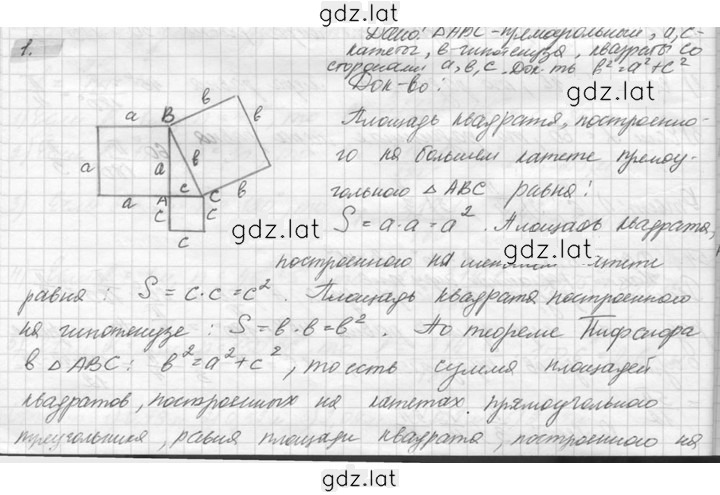 gdz.lat
1.
Дано: △ABC - прямоугольный, a, c -
катеты, в - гипотенуза, квадраты со
сторонами a, в, c. Док-ть в²=a²+c²
Док-во:
gdz.lat
a
B
в
в
a
a
в
в
c
a
A
C
в
c
c
c
Площадь квадрата, построенно-
го на большем катете прямоу-
гольного △ABC равна:
S = a·a = a². Площадь квадрата,
gdz.lat
gdz.lat
построенного на катете
равна: S = c·c = c². Площадь квадрата построенного
на гипотенузе: S = в·в = в². По теореме Пифагора
в △ABC: в²=a²+c², то есть сумма площадей
квадратов, построенных на катетах прямоугольного
треугольника, равна площади квадрата, построенного на
gdz.lat